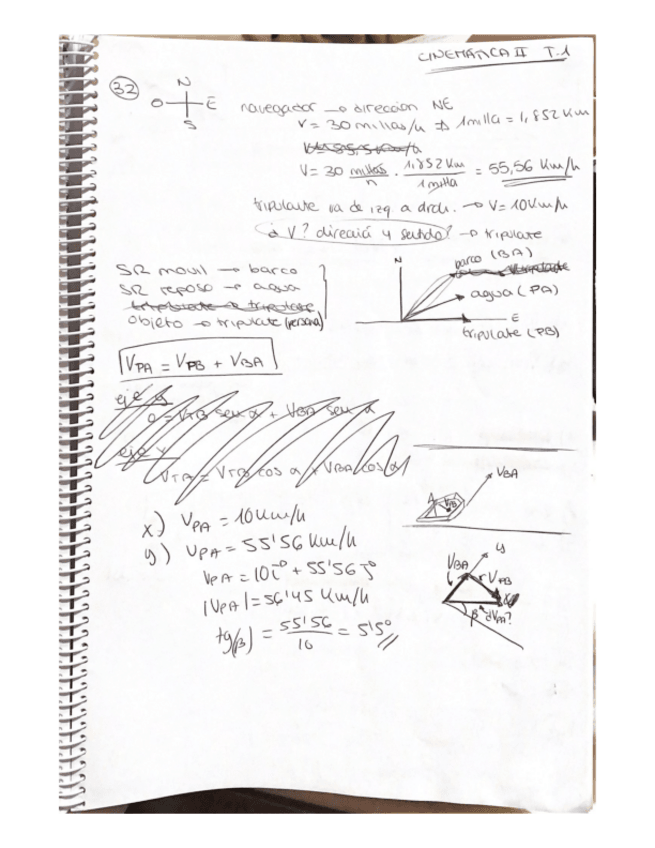 CINEMÁTICA II T.1
32
N
O E
S
navegador → dirección NE
V = 30 millas/h ⇒ 1 milla = 1,852 Km
V = 30 millas/h · 1,852 Km/1 milla = 55,56 Km/h
tripulante va de izq. a drch. → V = 10 Km/h
¿V? dirección y sentido? → tripulante
SR movil → barco
SR reposo → agua
objeto → tripulante (persona)
N
barco (BA)
agua (PA)
E
tripulante (PB)
VPA = VPB + VBA
eje y
0 = VTB sen α + VBA sen α
eje x
VTA = VTB cos α + VBA cos α
VBA
x) VPA = 10 Km/h
y) VPA = 55'56 Km/h
VPA = 10 i + 55'56 j
|VPA| = 56'45 Km/h
tg(β) = 55'56/10 = 5'5°
y
VBA
VPB
β
¿VPA?